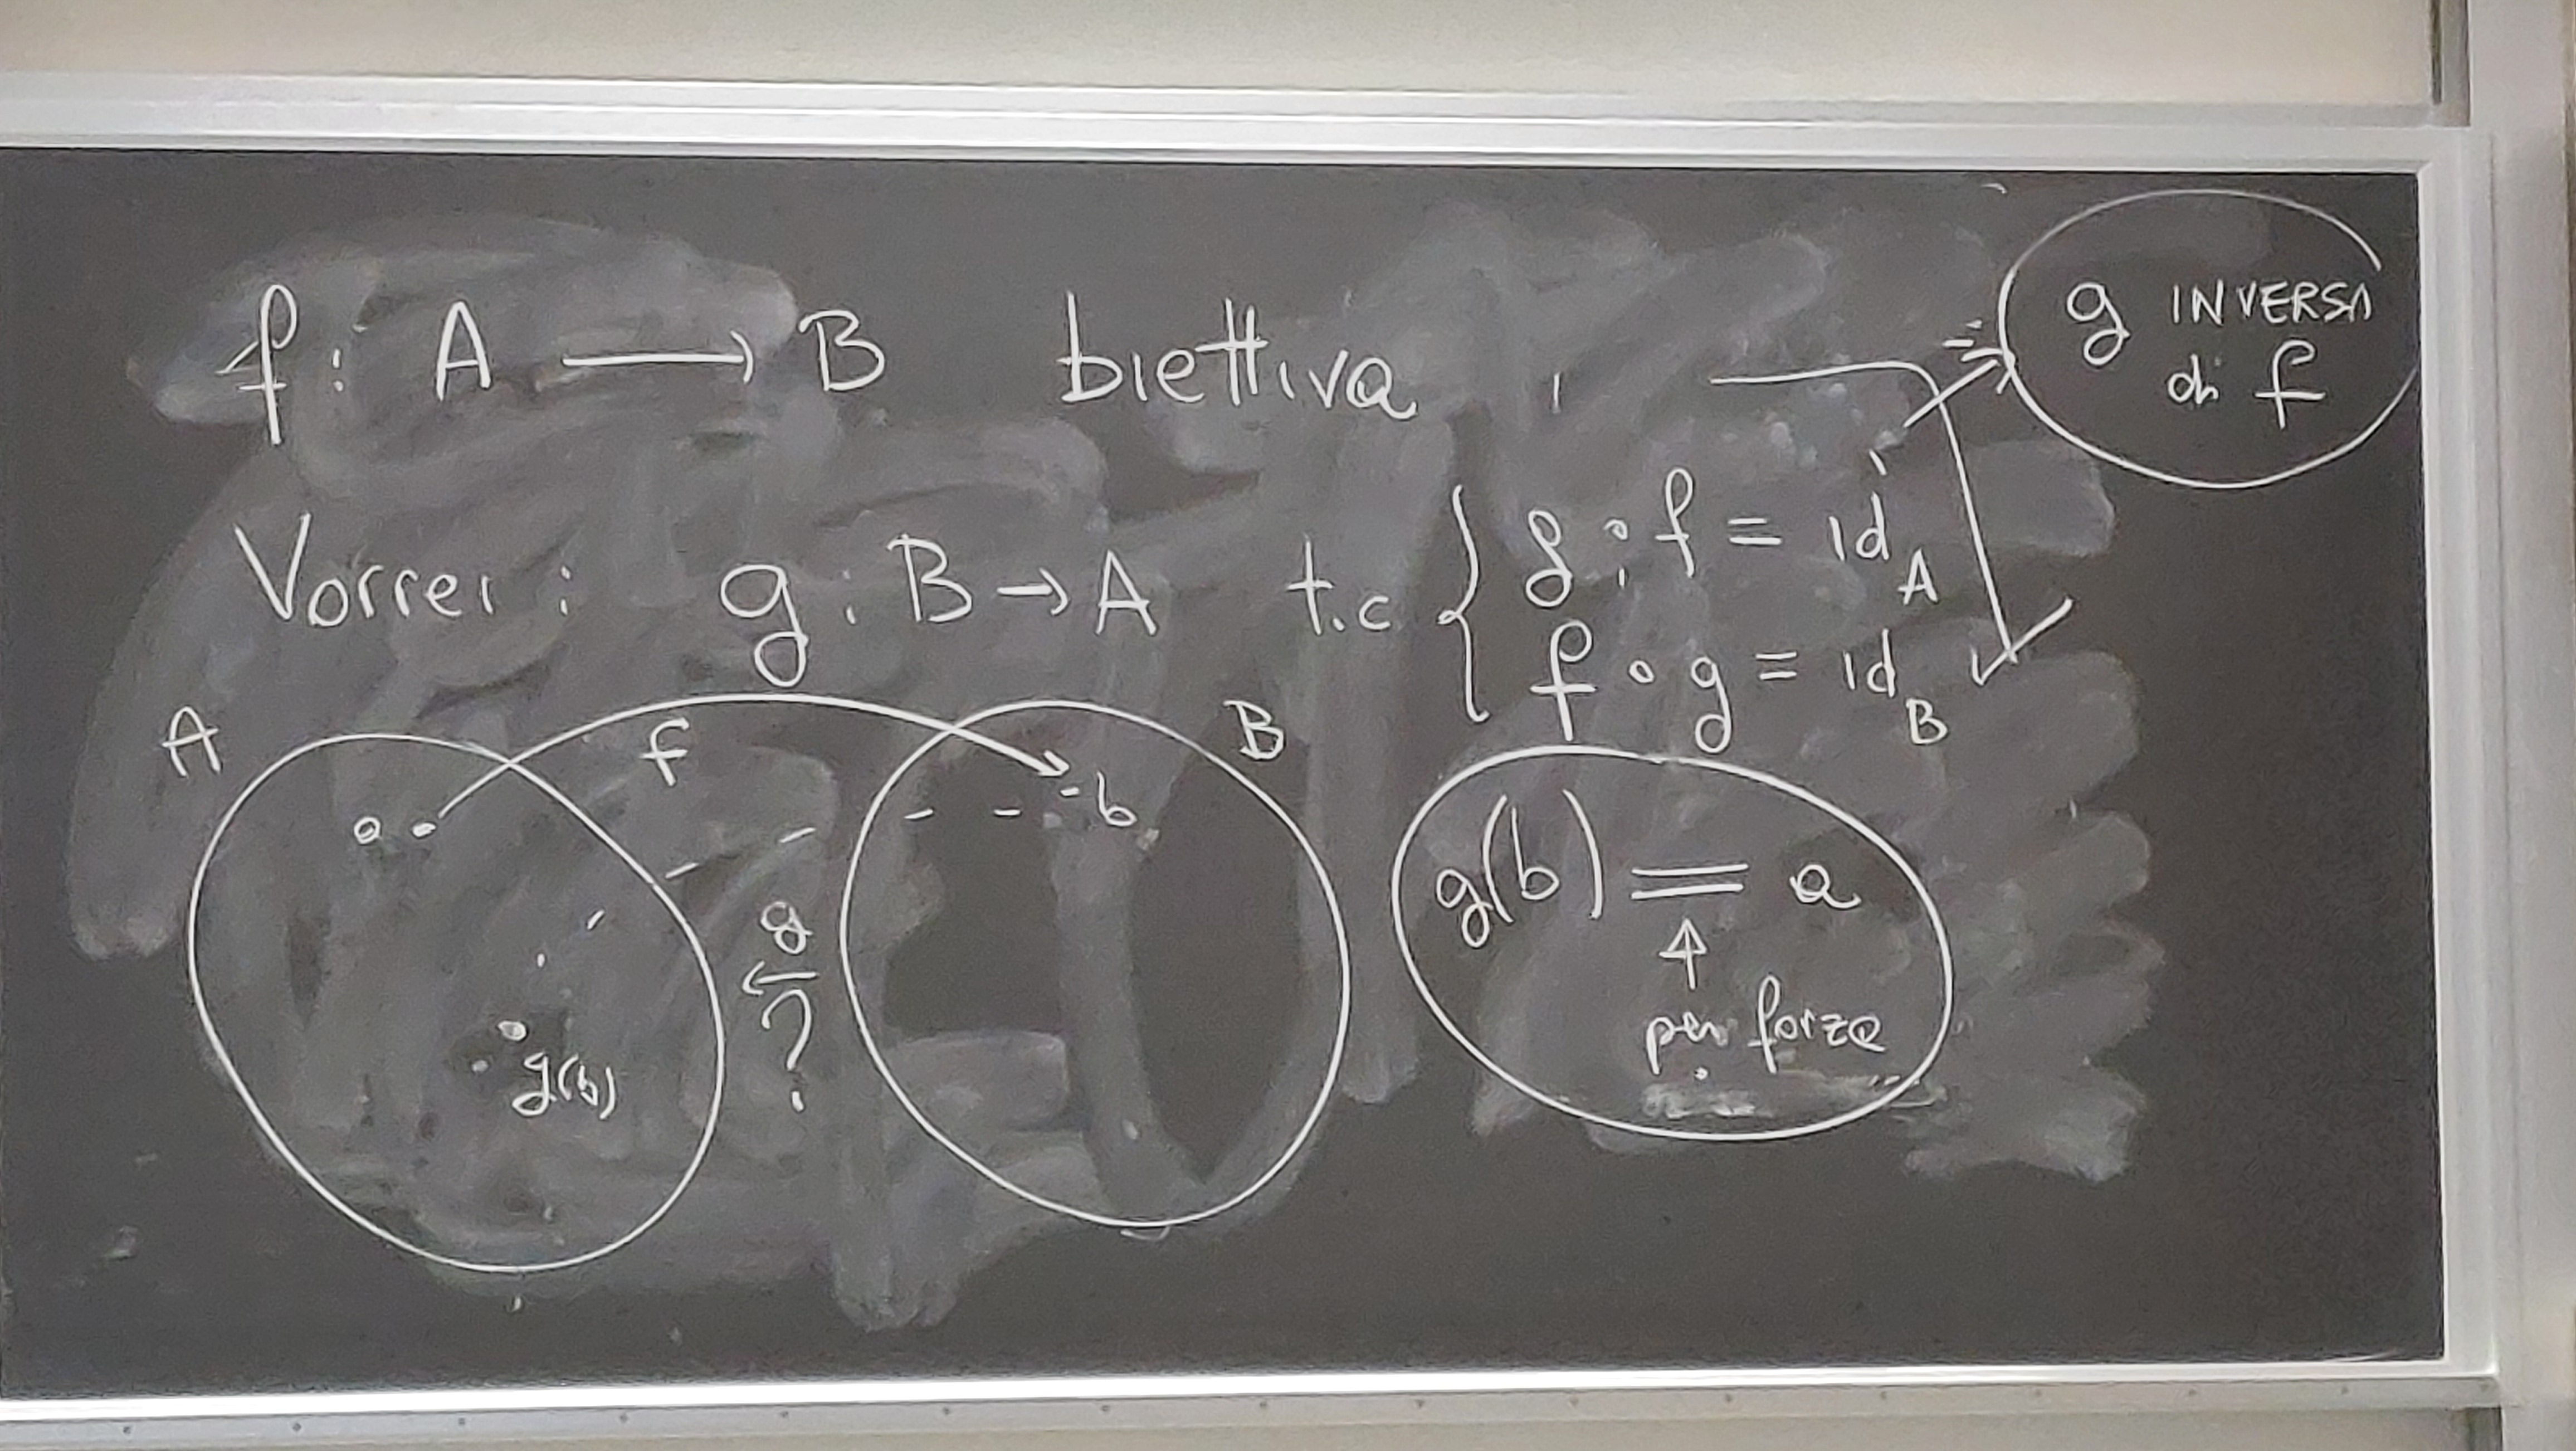 f : A → B biettiva ,
g INVERSA
di f
Vorrei : g : B → A t.c { g ∘ f = id_A
f ∘ g = id_B
A f B
a b
g(b) = a
g
←
?
↑
per forza
g(b)